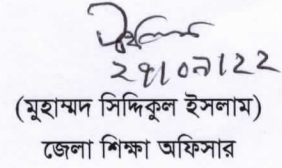 ২৭।০৯।২২
(মুহাম্মদ সিদ্দিকুল ইসলাম)
জেলা শিক্ষা অফিসার